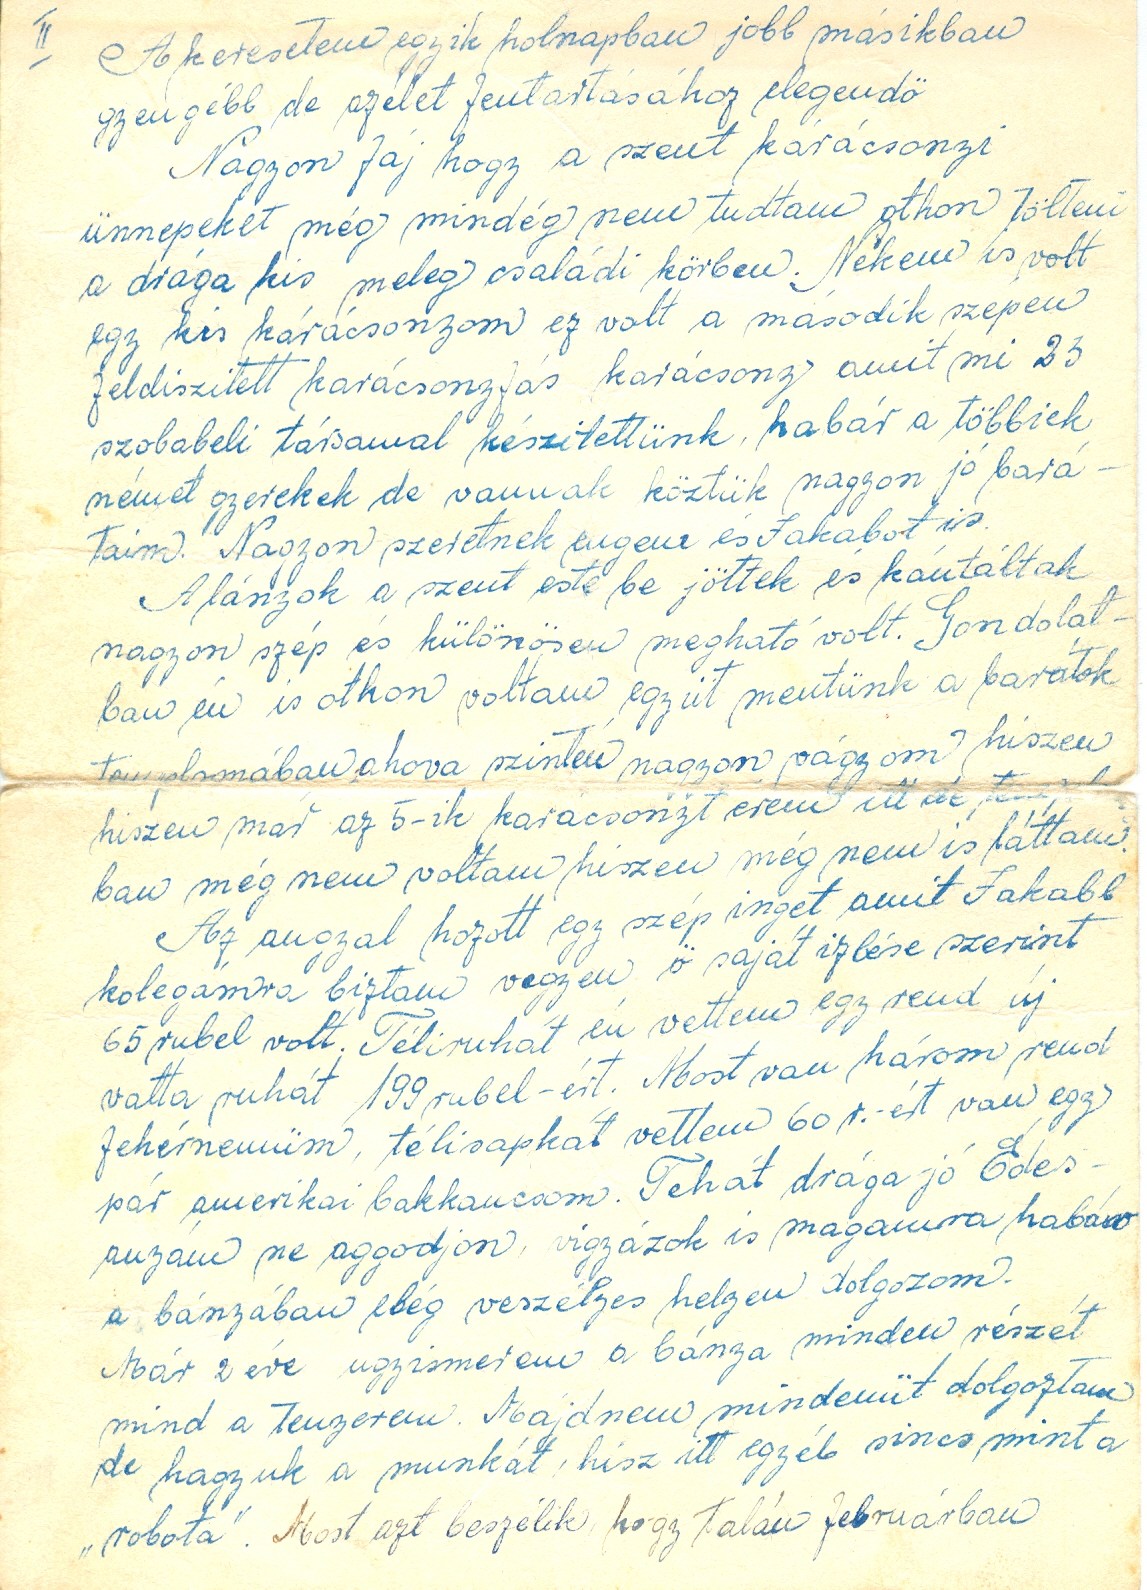 II
A keresetem egyik holnapban jobb másikban
gyengébb de azélet fentartásához elegendö
Nagyon fáj hogy a szent karácsonyi
ünnepeket még mindég nem tudtam othon tölteni
a drága kis meleg családi körben. Nékem is volt
egy kis karácsonyom ez volt a második szépen
feldiszitett karácsonyfás karácsony amit mi 23
szobabeli társamal készitettünk, habár a többiek
német gyerekek de vannak köztük nagyon jó bará-
taim. Nagyon szeretnek engem és Jakabot is.
A lányok a szent este be jöttek és kántáltak
nagyon szép és különösen megható volt. Gondolat-
ban én is othon voltam együt mentünk a barátok
templomában ahova szintén nagyon vágyom hiszen
hiszen már az 5-ik karácsonyt érem itt de
ban még nem voltam hiszen még nem is láttam.
Az angyal hozott egy szép inget amit Jakabb
kolegámra biztam vegyen ö saját izlése szerint
65 rubel volt. Téliruhát én vettem egy rend új
vatta ruhát 199 rubel-ért. Most van három rend
fehérnemüm, télisapkát vettem 60 r.-ért van egy
pár amerikai bakkancsom. Tehát drága jó Édes-
anyam ne aggodjon, vigyázok is magamra habár
a bányában elég veszélyes helyen dolgozom.
Már 2 éve ugyismerem a bánya minden részét
mind a tenyerem. Majdnem mindenüt dolgoztam
de hagyuk a munkát, hisz itt egyéb sincs mint a
„robota". Most azt beszélik, hogy talán februárban